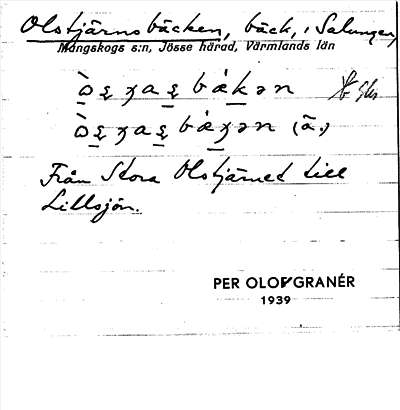 Olstjärnsbäcken, bäck, i Salungen,
Mangskogs s:n, Jösse härad, Värmlands län
(ä.)
Från Stora Olstjärnet till
Lillsjön.
PER OLOF GRANÉR
1939